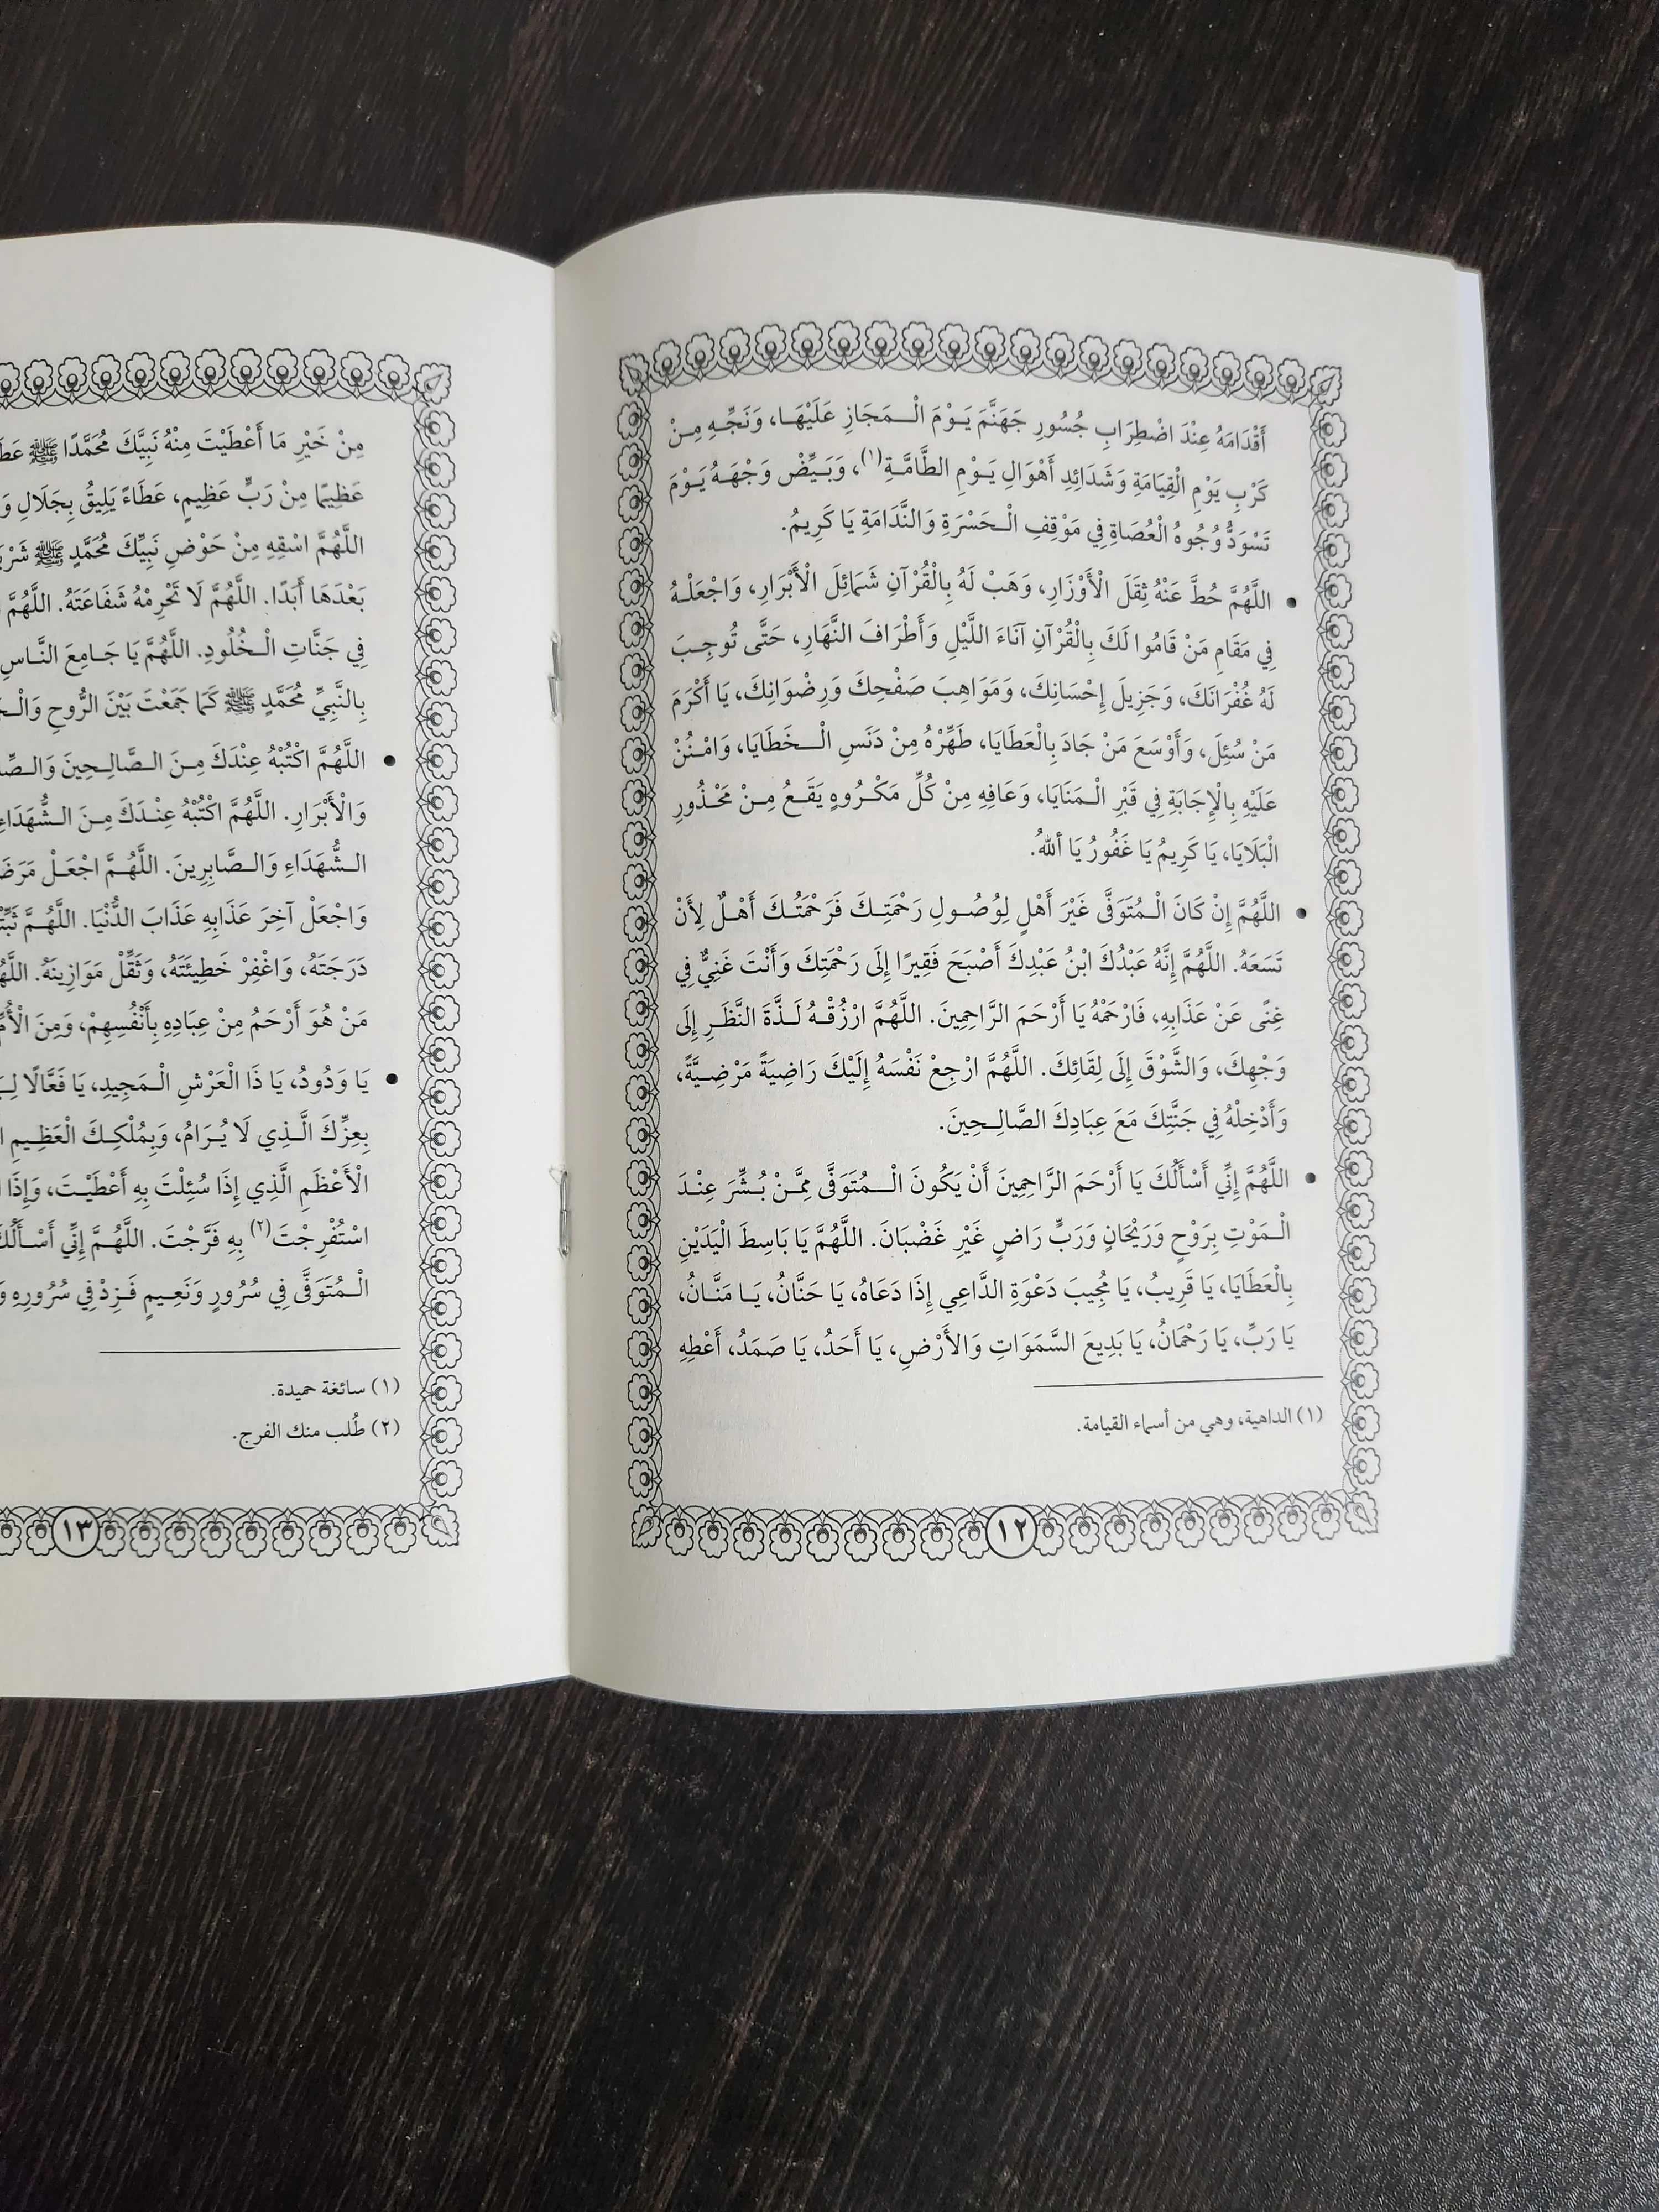 أَقْدَامَهُ عِنْدَ اضْطِرَابِ جُسُورِ جَهَنَّمَ يَوْمَ الْمَجَازِ عَلَيْهَا، وَنَجِّهِ مِنْ
كَرْبِ يَوْمِ الْقِيَامَةِ وَشَدَائِدِ أَهْوَالِ يَوْمِ الطَّامَّةِ(١)، وَبَيِّضْ وَجْهَهُ يَوْمَ
تَسْوَدُّ وُجُوهُ الْعُصَاةِ فِي مَوْقِفِ الْحَسْرَةِ وَالنَّدَامَةِ يَا كَرِيمُ.
• اللَّهُمَّ حُطَّ عَنْهُ ثِقَلَ الْأَوْزَارِ، وَهَبْ لَهُ بِالْقُرْآنِ شَمَائِلَ الْأَبْرَارِ، وَاجْعَلْهُ
فِي مَقَامِ مَنْ قَامُوا لَكَ بِالْقُرْآنِ آنَاءَ اللَّيْلِ وَأَطْرَافَ النَّهَارِ، حَتَّى تُوجِبَ
لَهُ غُفْرَانَكَ، وَجَزِيلَ إِحْسَانِكَ، وَمَوَاهِبَ صَفْحِكَ وَرِضْوَانِكَ، يَا أَكْرَمَ
مَنْ سُئِلَ، وَأَوْسَعَ مَنْ جَادَ بِالْعَطَايَا، طَهِّرْهُ مِنْ دَنَسِ الْخَطَايَا، وَامْنُنْ
عَلَيْهِ بِالْإِجَابَةِ فِي قَبْرِ الْمَنَايَا، وَعَافِهِ مِنْ كُلِّ مَكْرُوهٍ يَقَعُ مِنْ مَحْذُورِ
الْبَلَايَا، يَا كَرِيمُ يَا غَفُورُ يَا أَللهُ.
• اللَّهُمَّ إِنْ كَانَ الْمُتَوَفَّى غَيْرَ أَهْلٍ لِوُصُولِ رَحْمَتِكَ فَرَحْمَتُكَ أَهْلٌ لِأَنْ
تَسَعَهُ. اللَّهُمَّ إِنَّهُ عَبْدُكَ ابْنُ عَبْدِكَ أَصْبَحَ فَقِيرًا إِلَى رَحْمَتِكَ وَأَنْتَ غَنِيٌّ فِي
غِنًى عَنْ عَذَابِهِ، فَارْحَمْهُ يَا أَرْحَمَ الرَّاحِمِينَ. اللَّهُمَّ ارْزُقْهُ لَذَّةَ النَّظَرِ إِلَى
وَجْهِكَ، وَالشَّوْقَ إِلَى لِقَائِكَ. اللَّهُمَّ ارْجِعْ نَفْسَهُ إِلَيْكَ رَاضِيَةً مَرْضِيَّةً،
وَأَدْخِلْهُ فِي جَنَّتِكَ مَعَ عِبَادِكَ الصَّالِحِينَ.
• اللَّهُمَّ إِنِّي أَسْأَلُكَ يَا أَرْحَمَ الرَّاحِمِينَ أَنْ يَكُونَ الْمُتَوَفَّى مِمَّنْ بُشِّرَ عِنْدَ
الْمَوْتِ بِرَوْحٍ وَرَيْحَانٍ وَرَبٍّ رَاضٍ غَيْرِ غَضْبَانَ. اللَّهُمَّ يَا بَاسِطَ الْيَدَيْنِ
بِالْعَطَايَا، يَا قَرِيبُ، يَا مُجِيبَ دَعْوَةِ الدَّاعِي إِذَا دَعَاهُ، يَا حَنَّانُ، يَا مَنَّانُ،
يَا رَبِّ، يَا رَحْمَانُ، يَا بَدِيعَ السَّمَوَاتِ وَالأَرْضِ، يَا أَحَدُ، يَا صَمَدُ، أَعْطِهِ
(١) الداهية، وهي من أسماء القيامة.
١٢
مِنْ خَيْرِ مَا أَعْطَيْتَ مِنْهُ نَبِيَّكَ مُحَمَّدًا ﷺ
عَظِيمًا مِنْ رَبٍّ عَظِيمٍ، عَطَاءً يَلِيقُ بِجَلَالِ
اللَّهُمَّ اسْقِهِ مِنْ حَوْضِ نَبِيِّكَ مُحَمَّدٍ ﷺ
بَعْدَهَا أَبَدًا. اللَّهُمَّ لَا تَحْرِمْهُ شَفَاعَتَهُ. اللَّهُمَّ
فِي جَنَّاتِ الْخُلُودِ. اللَّهُمَّ يَا جَامِعَ النَّاسِ
بِالنَّبِيِّ مُحَمَّدٍ ﷺ كَمَا جَمَعْتَ بَيْنَ الرُّوحِ
• اللَّهُمَّ اكْتُبْهُ عِنْدَكَ مِنَ الصَّالِحِينَ
وَالْأَبْرَارِ. اللَّهُمَّ اكْتُبْهُ عِنْدَكَ مِنَ الشُّهَدَاءِ
الشُّهَدَاءِ وَالصَّابِرِينَ. اللَّهُمَّ اجْعَلْ
وَاجْعَلْ آخِرَ عَذَابِهِ عَذَابَ الدُّنْيَا. اللَّهُمَّ
دَرَجَتَهُ، وَاغْفِرْ خَطِيئَتَهُ، وَثَقِّلْ مَوَازِينَهُ.
مَنْ هُوَ أَرْحَمُ مِنْ عِبَادِهِ بِأَنْفُسِهِمْ، وَمِنَ
• يَا وَدُودُ، يَا ذَا الْعَرْشِ الْمَجِيدِ، يَا فَعَّالًا
بِعِزِّكَ الَّذِي لَا يُرَامُ، وَبِمُلْكِكَ الْعَظِيمِ
الْأَعْظَمِ الَّذِي إِذَا سُئِلْتَ بِهِ أَعْطَيْتَ، وَإِذَا
اسْتُفْرِجْتَ(٢) بِهِ فَرَّجْتَ. اللَّهُمَّ إِنِّي أَسْأَلُكَ
الْمُتَوَفَّى فِي سُرُورٍ وَنَعِيمٍ فَزِدْ فِي سُرُورِهِ
(١) سائغة حميدة.
(٢) طُلب منك الفرج.
١٣